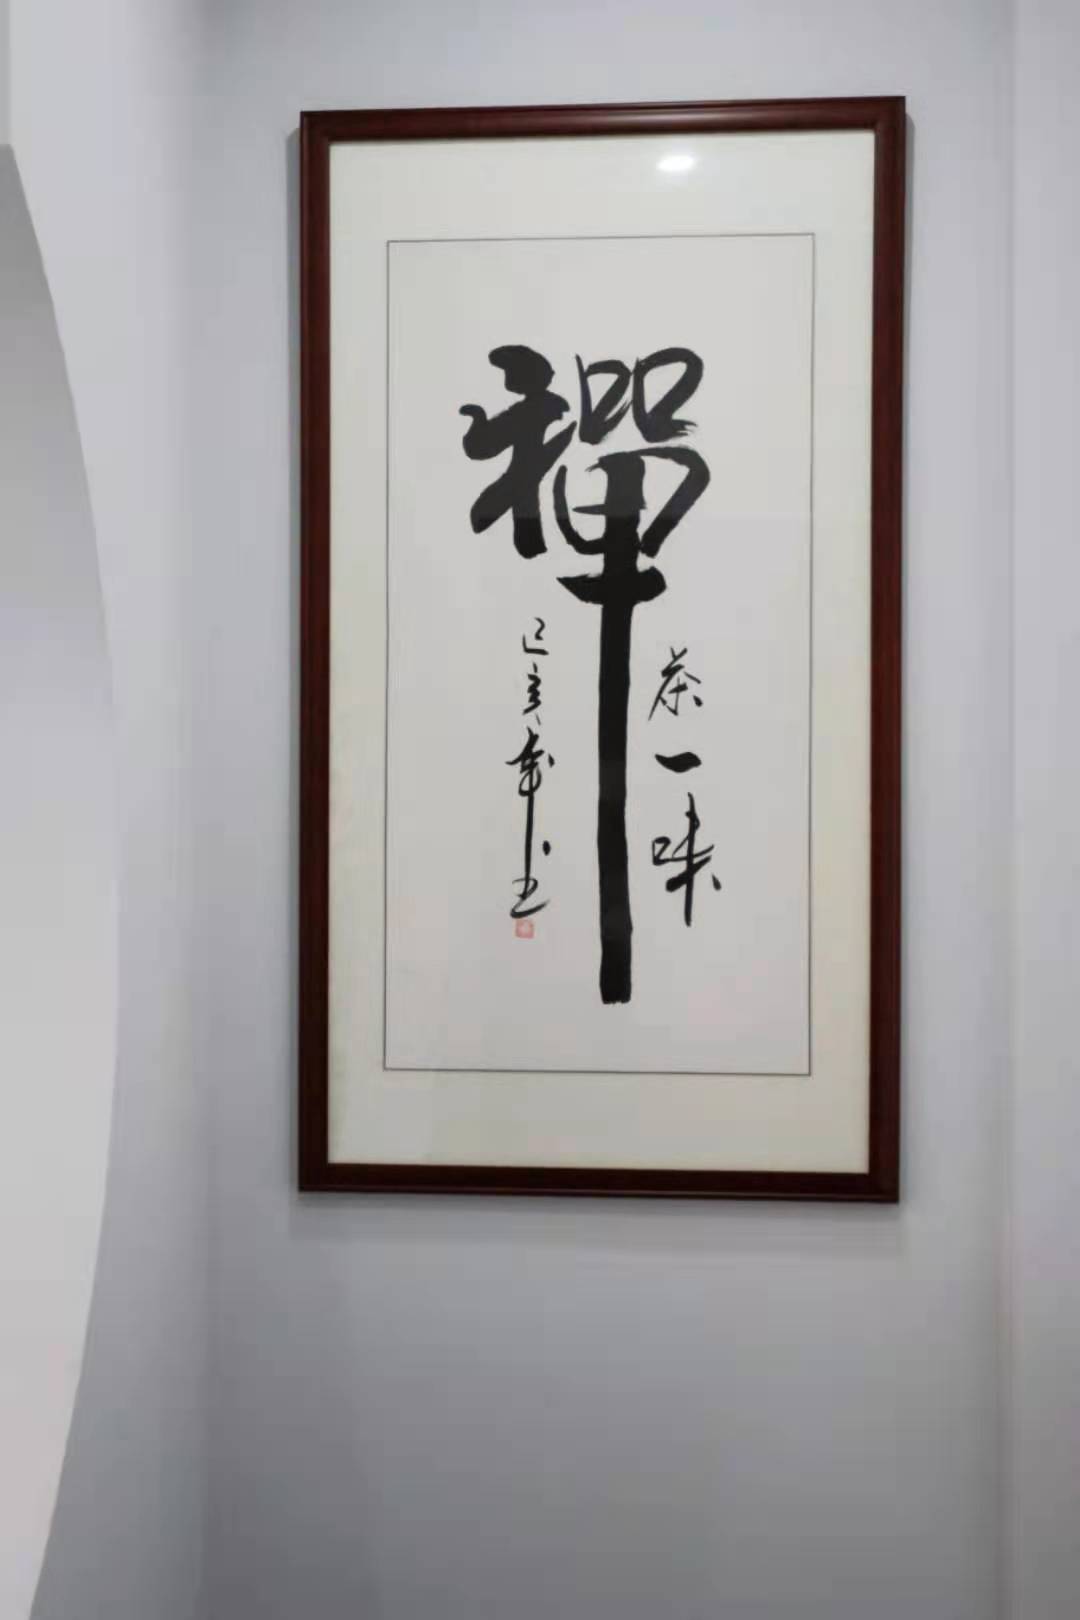 禪
茶一味
己亥年